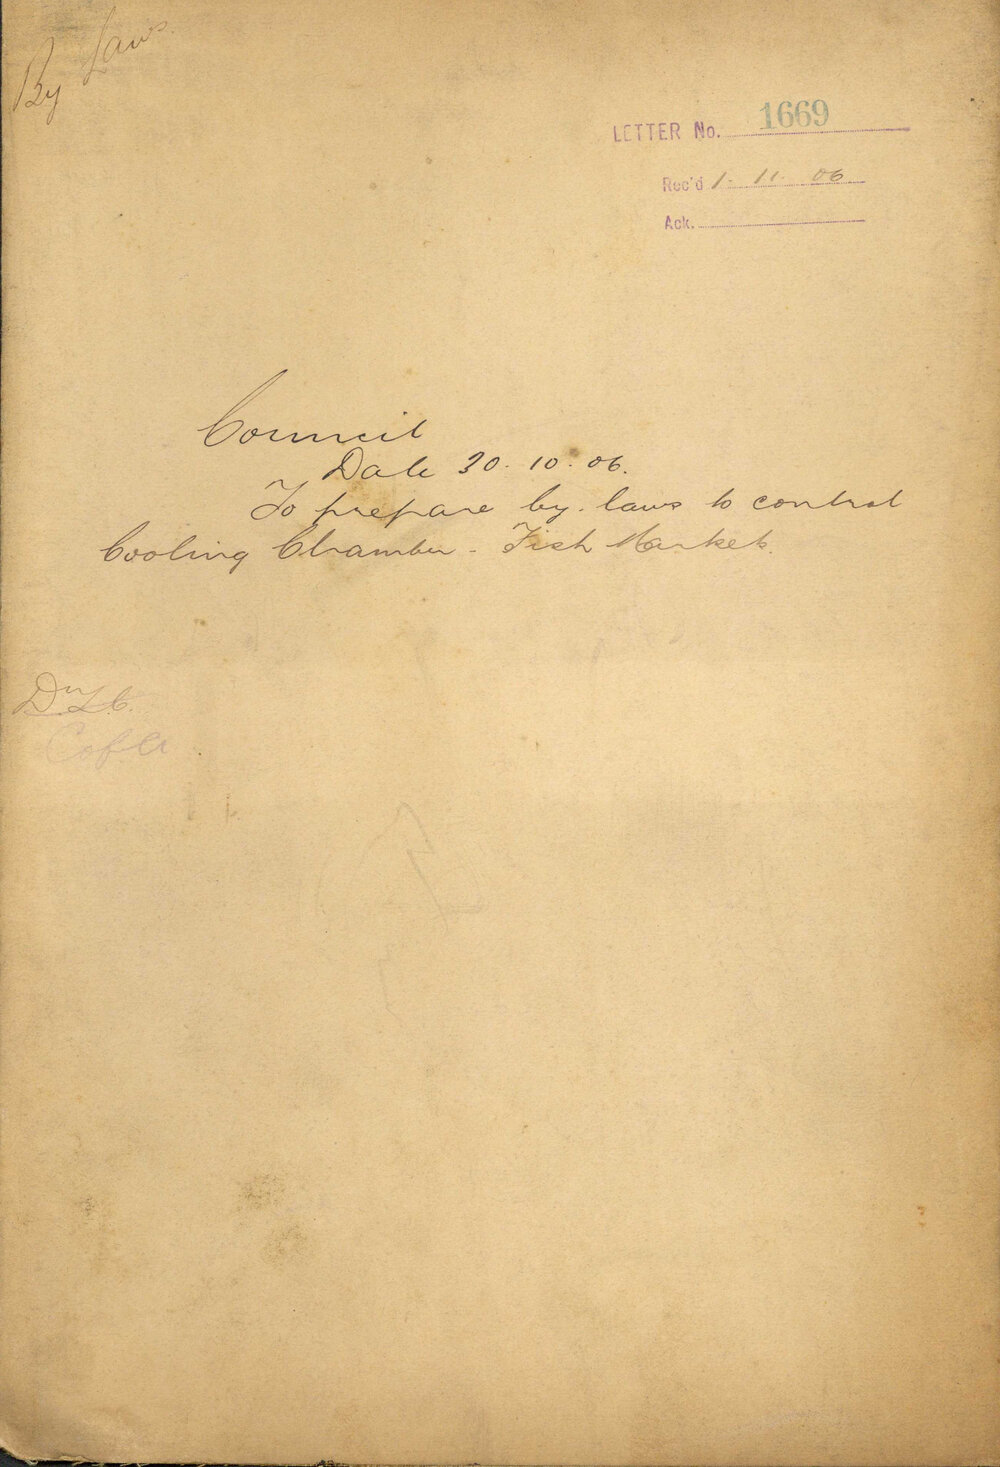 By Laws.
LETTER No. 1669
Rec'd 1. 11. 06
Ack.
Council
Date 30. 10. 06.
To prepare by-laws to control
Cooling Chamber - Fish Markets.